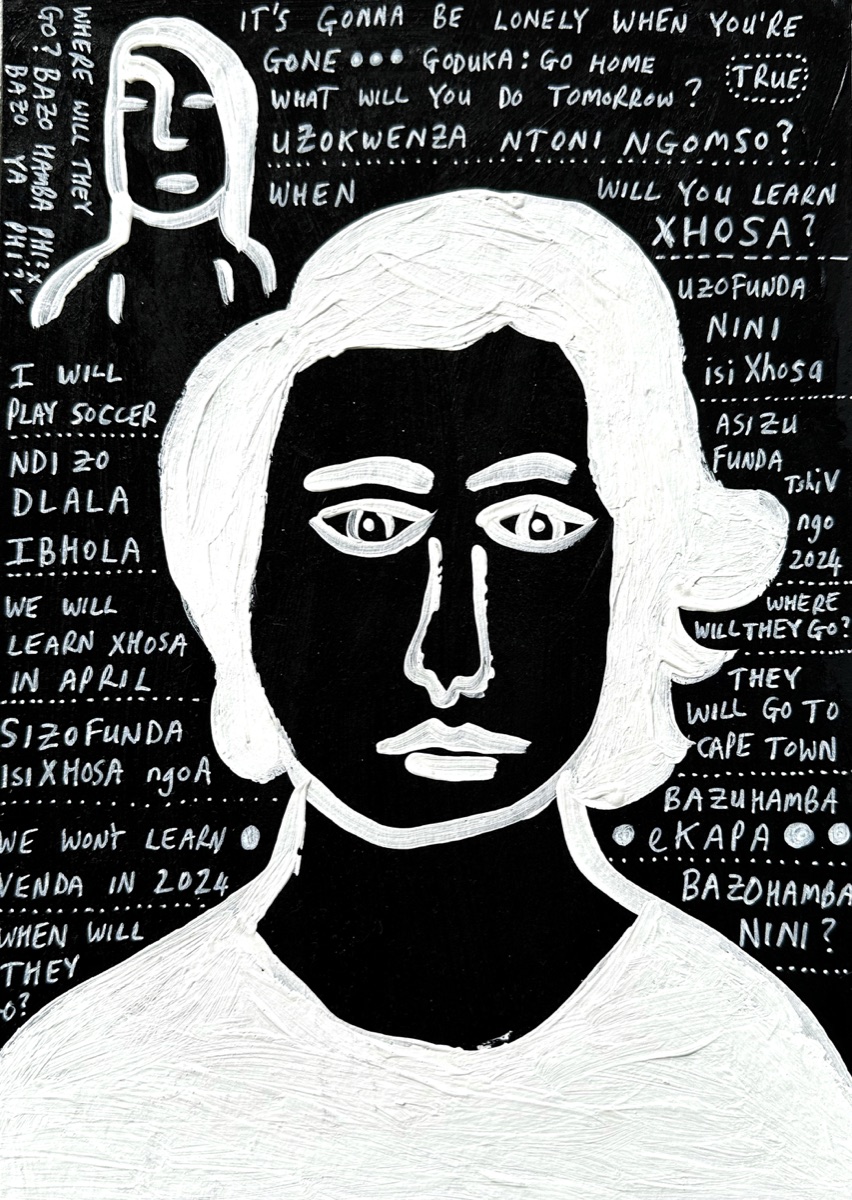 IT'S GONNA BE LONELY WHEN YOU'RE
GONE ••• GODUKA: GO HOME
TRUE
WHAT WILL YOU DO TOMORROW?
UZOKWENZA NTONI NGOMSO?
WHEN WILL YOU LEARN
XHOSA?
UZOFUNDA
NINI
isiXhosa
ASIZU
FUNDA
TshiV
ngo
2024
WHERE
WILL THEY GO?
THEY
WILL GO TO
CAPE TOWN
BAZUHAMBA
eKAPA
BAZOHAMBA
NINI?
WHERE WILL THEY
GO? BAZO HAMBA PHI? X
BAZO YA PHI? ✓
I WILL
PLAY SOCCER
NDIZO
DLALA
IBHOLA
WE WILL
LEARN XHOSA
IN APRIL
SIZOFUNDA
isiXHOSA ngoA
WE WON'T LEARN
VENDA IN 2024
WHEN WILL
THEY
GO?